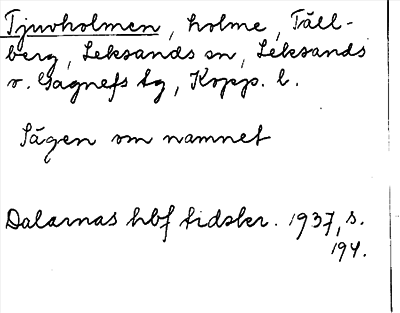 Tjuvholmen, holme, Täll-
berg, Leksands sn, Leksands
o. Gagnefs tg, Kopp. l.
Sägen om namnet
Dalarnas hbf tidskr. 1937, s.
194.